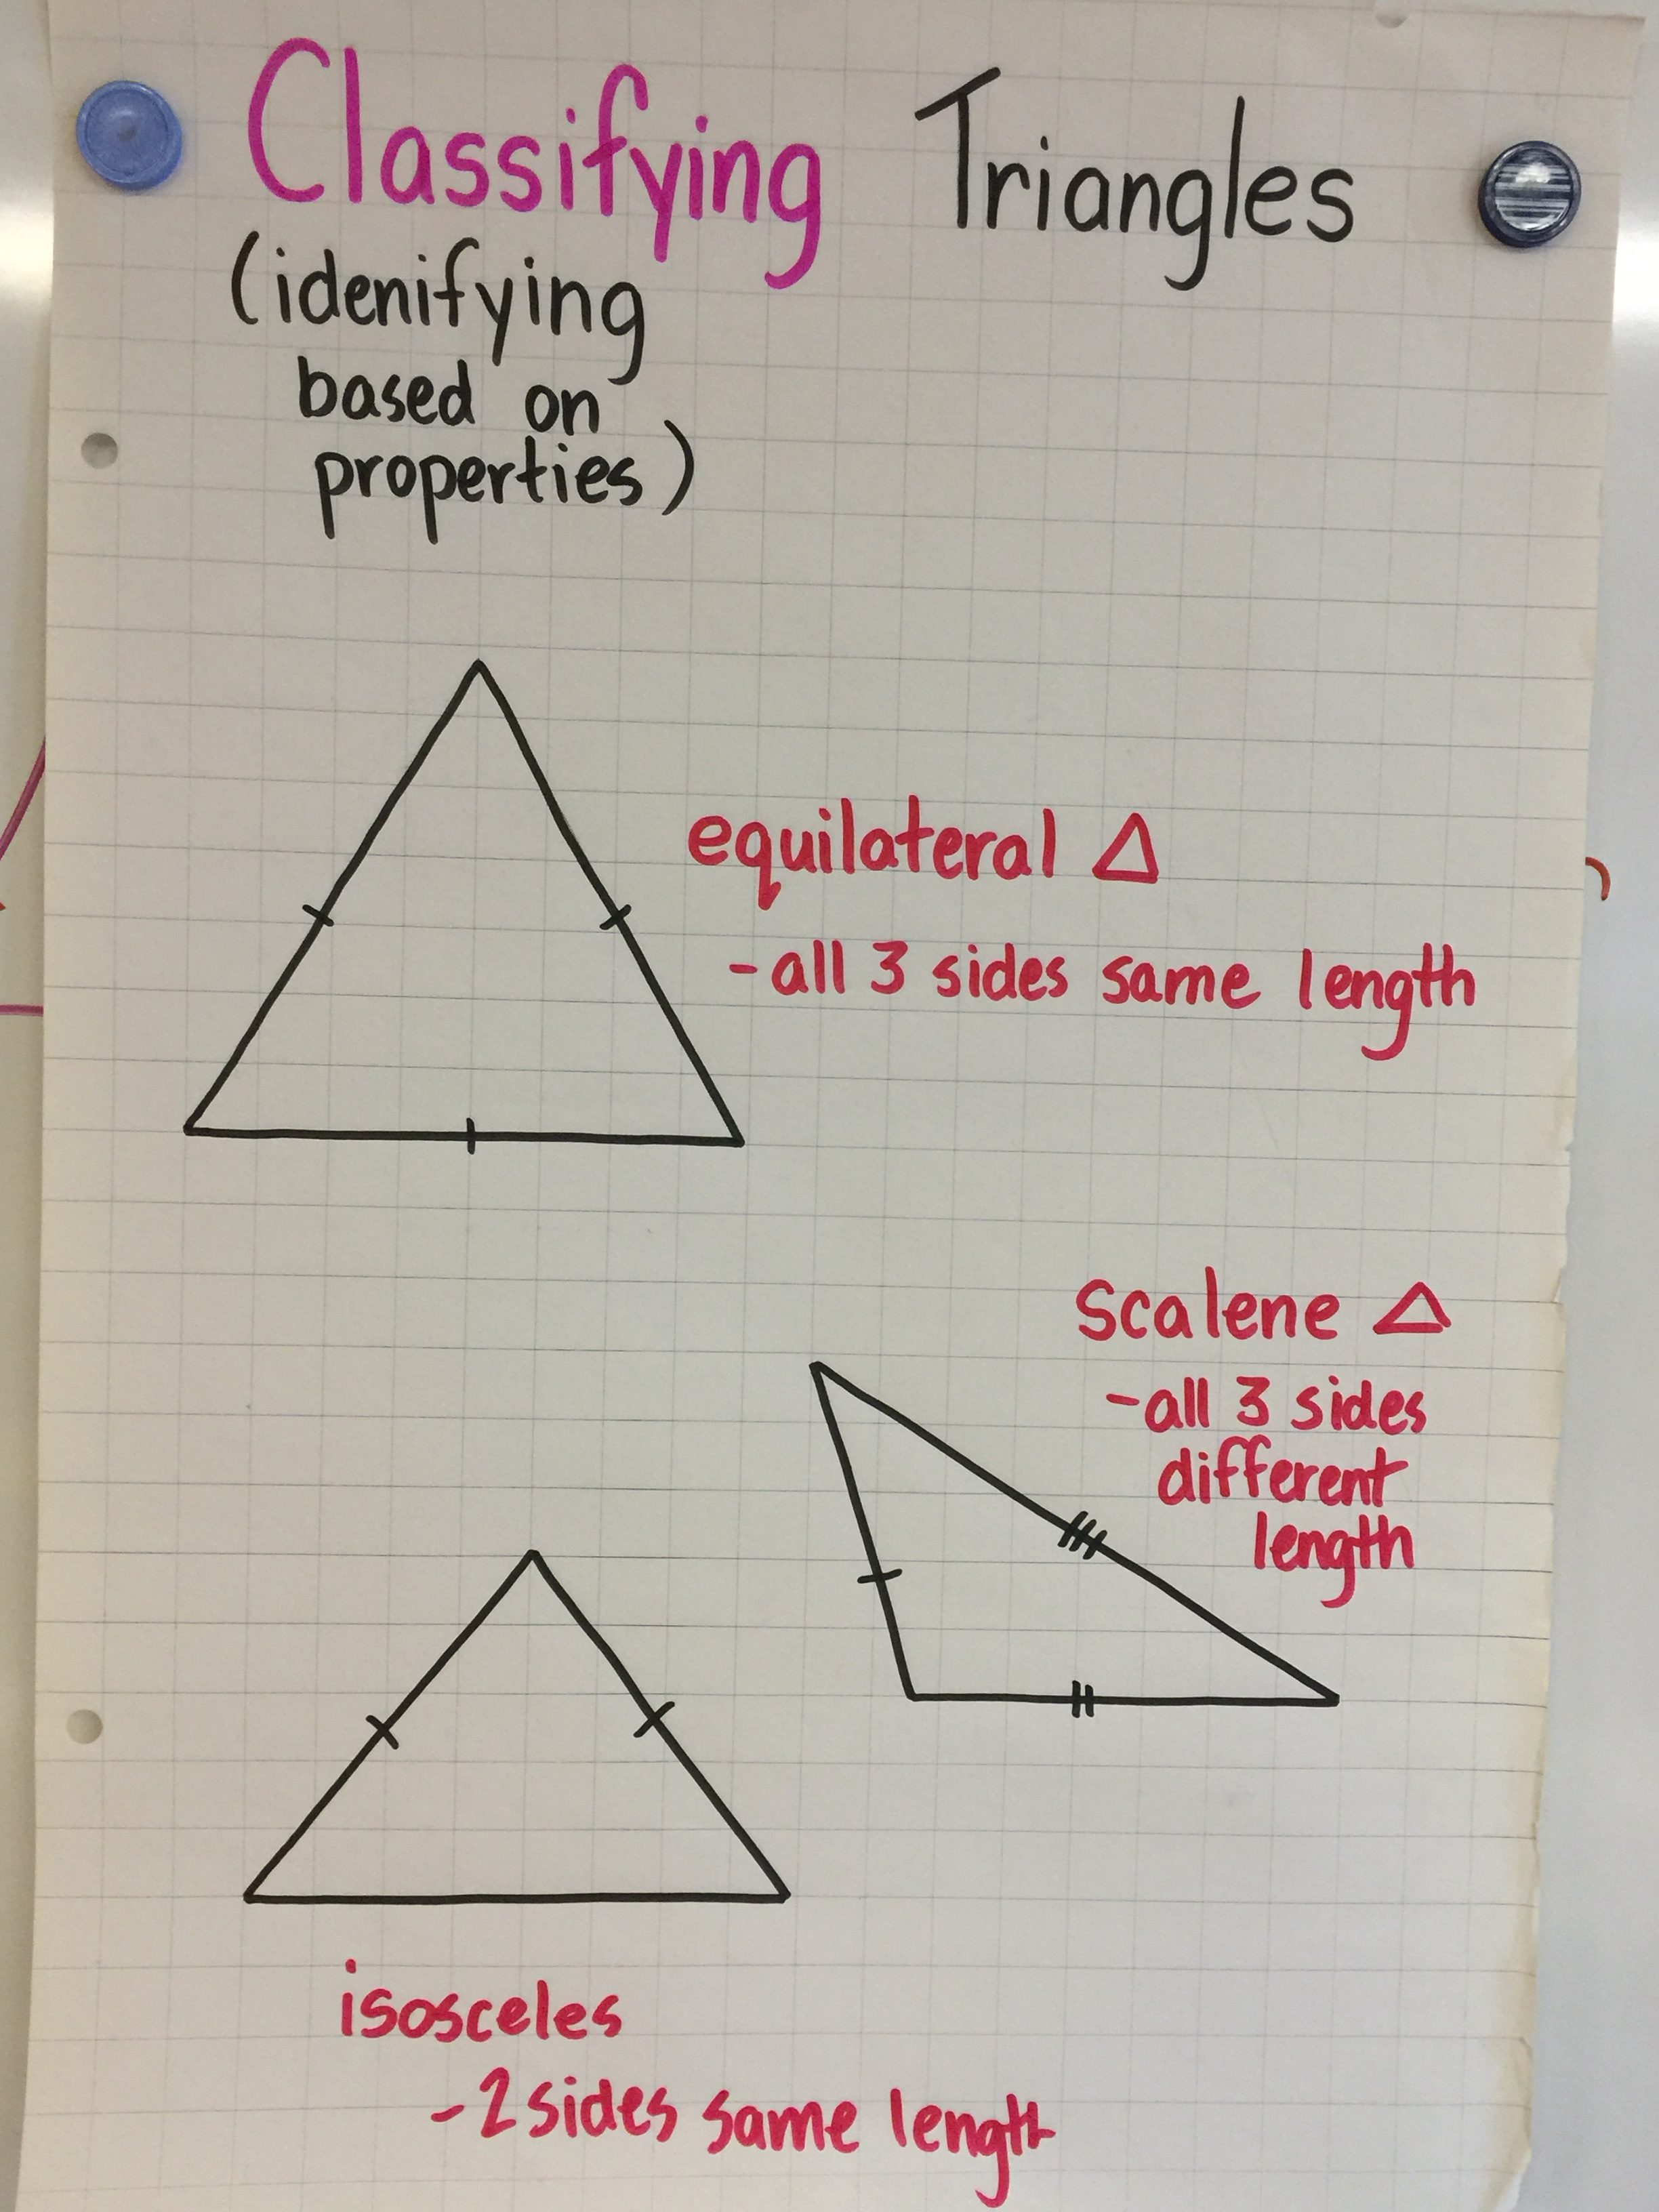 Classifying Triangles
(idenifying
based on
properties)
equilateral △
-all 3 sides same length
Scalene △
-all 3 sides
different
length
isosceles
-2 sides same length